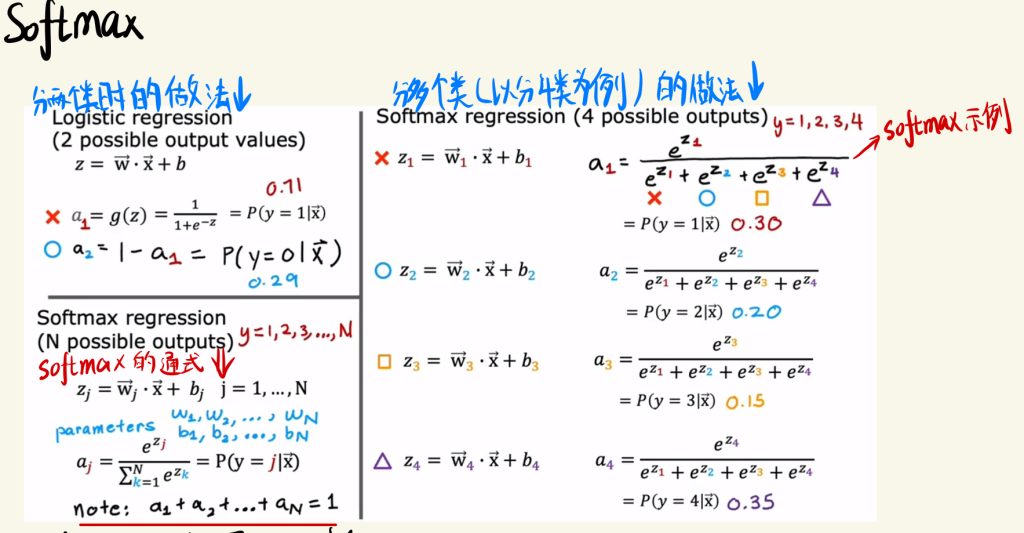 Softmax
分两类时的做法↓
Logistic regression
(2 possible output values)
z = w⃗ · x⃗ + b
0.71
× a₁ = g(z) = 1/(1+e^{-z}) = P(y = 1|x⃗)
○ a₂ = 1 - a₁ = P(y=0|x⃗)
0.29
Softmax regression
(N possible outputs) y=1,2,3,...,N
softmax的通式↓
z_j = w⃗_j · x⃗ + b_j j = 1, ..., N
parameters w₁, w₂, ..., w_N
b₁, b₂, ..., b_N
a_j = e^{z_j}/∑_{k=1}^{N} e^{z_k} = P(y = j|x⃗)
note: a₁ + a₂ + ... + a_N = 1
分多个类(以分4类为例)的做法↓
Softmax regression (4 possible outputs) y=1,2,3,4
softmax示例
× z₁ = w⃗₁ · x⃗ + b₁ a₁ = e^{z₁}/(e^{z₁} + e^{z₂} + e^{z₃} + e^{z₄})
× ○ □ △
= P(y = 1|x⃗) 0.30
○ z₂ = w⃗₂ · x⃗ + b₂ a₂ = e^{z₂}/(e^{z₁} + e^{z₂} + e^{z₃} + e^{z₄})
= P(y = 2|x⃗) 0.20
□ z₃ = w⃗₃ · x⃗ + b₃ a₃ = e^{z₃}/(e^{z₁} + e^{z₂} + e^{z₃} + e^{z₄})
= P(y = 3|x⃗) 0.15
△ z₄ = w⃗₄ · x⃗ + b₄ a₄ = e^{z₄}/(e^{z₁} + e^{z₂} + e^{z₃} + e^{z₄})
= P(y = 4|x⃗) 0.35